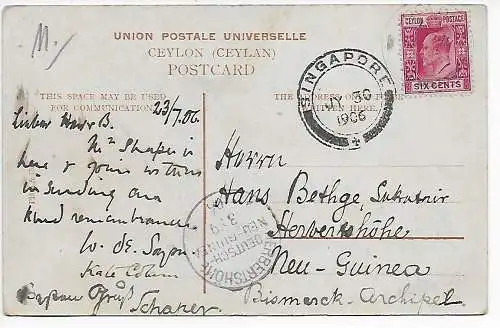 M.
UNION POSTALE UNIVERSELLE
CEYLON (CEYLAN)
POSTCARD
THIS SPACE MAY BE USED
FOR COMMUNICATION
THE ADDRESS ONLY TO BE
WRITTEN HERE.
CEYLON POSTAGE
SIX CENTS
SINGAPORE
30
1906
23/7.06.
Lieber Herr B.
Mr Shafer is
here & joins us in
sending our
kind remembrances
W. de
Kate
Herrn
Hans Bethge, Sekretär
Herbertshöhe
Neu-Guinea
Bismarck-Archipel
HERBERTSHÖHE
DEUTSCH-
NEU-GUINEA
Gruß
Schafer.